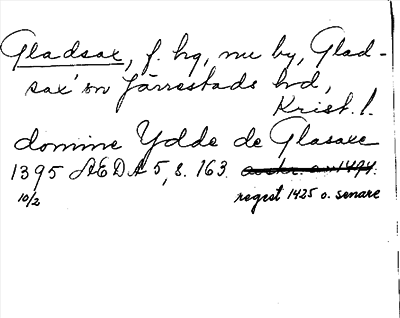 Gladsax, f. hg, nu by, Glad-
sax' sn Järrestads hd,
Krist. l.
domine Ydde de Glasaxe
1395 ÆDA 5, s. 163. avskr. a. 1494.
10/2 regest 1425 o. senare